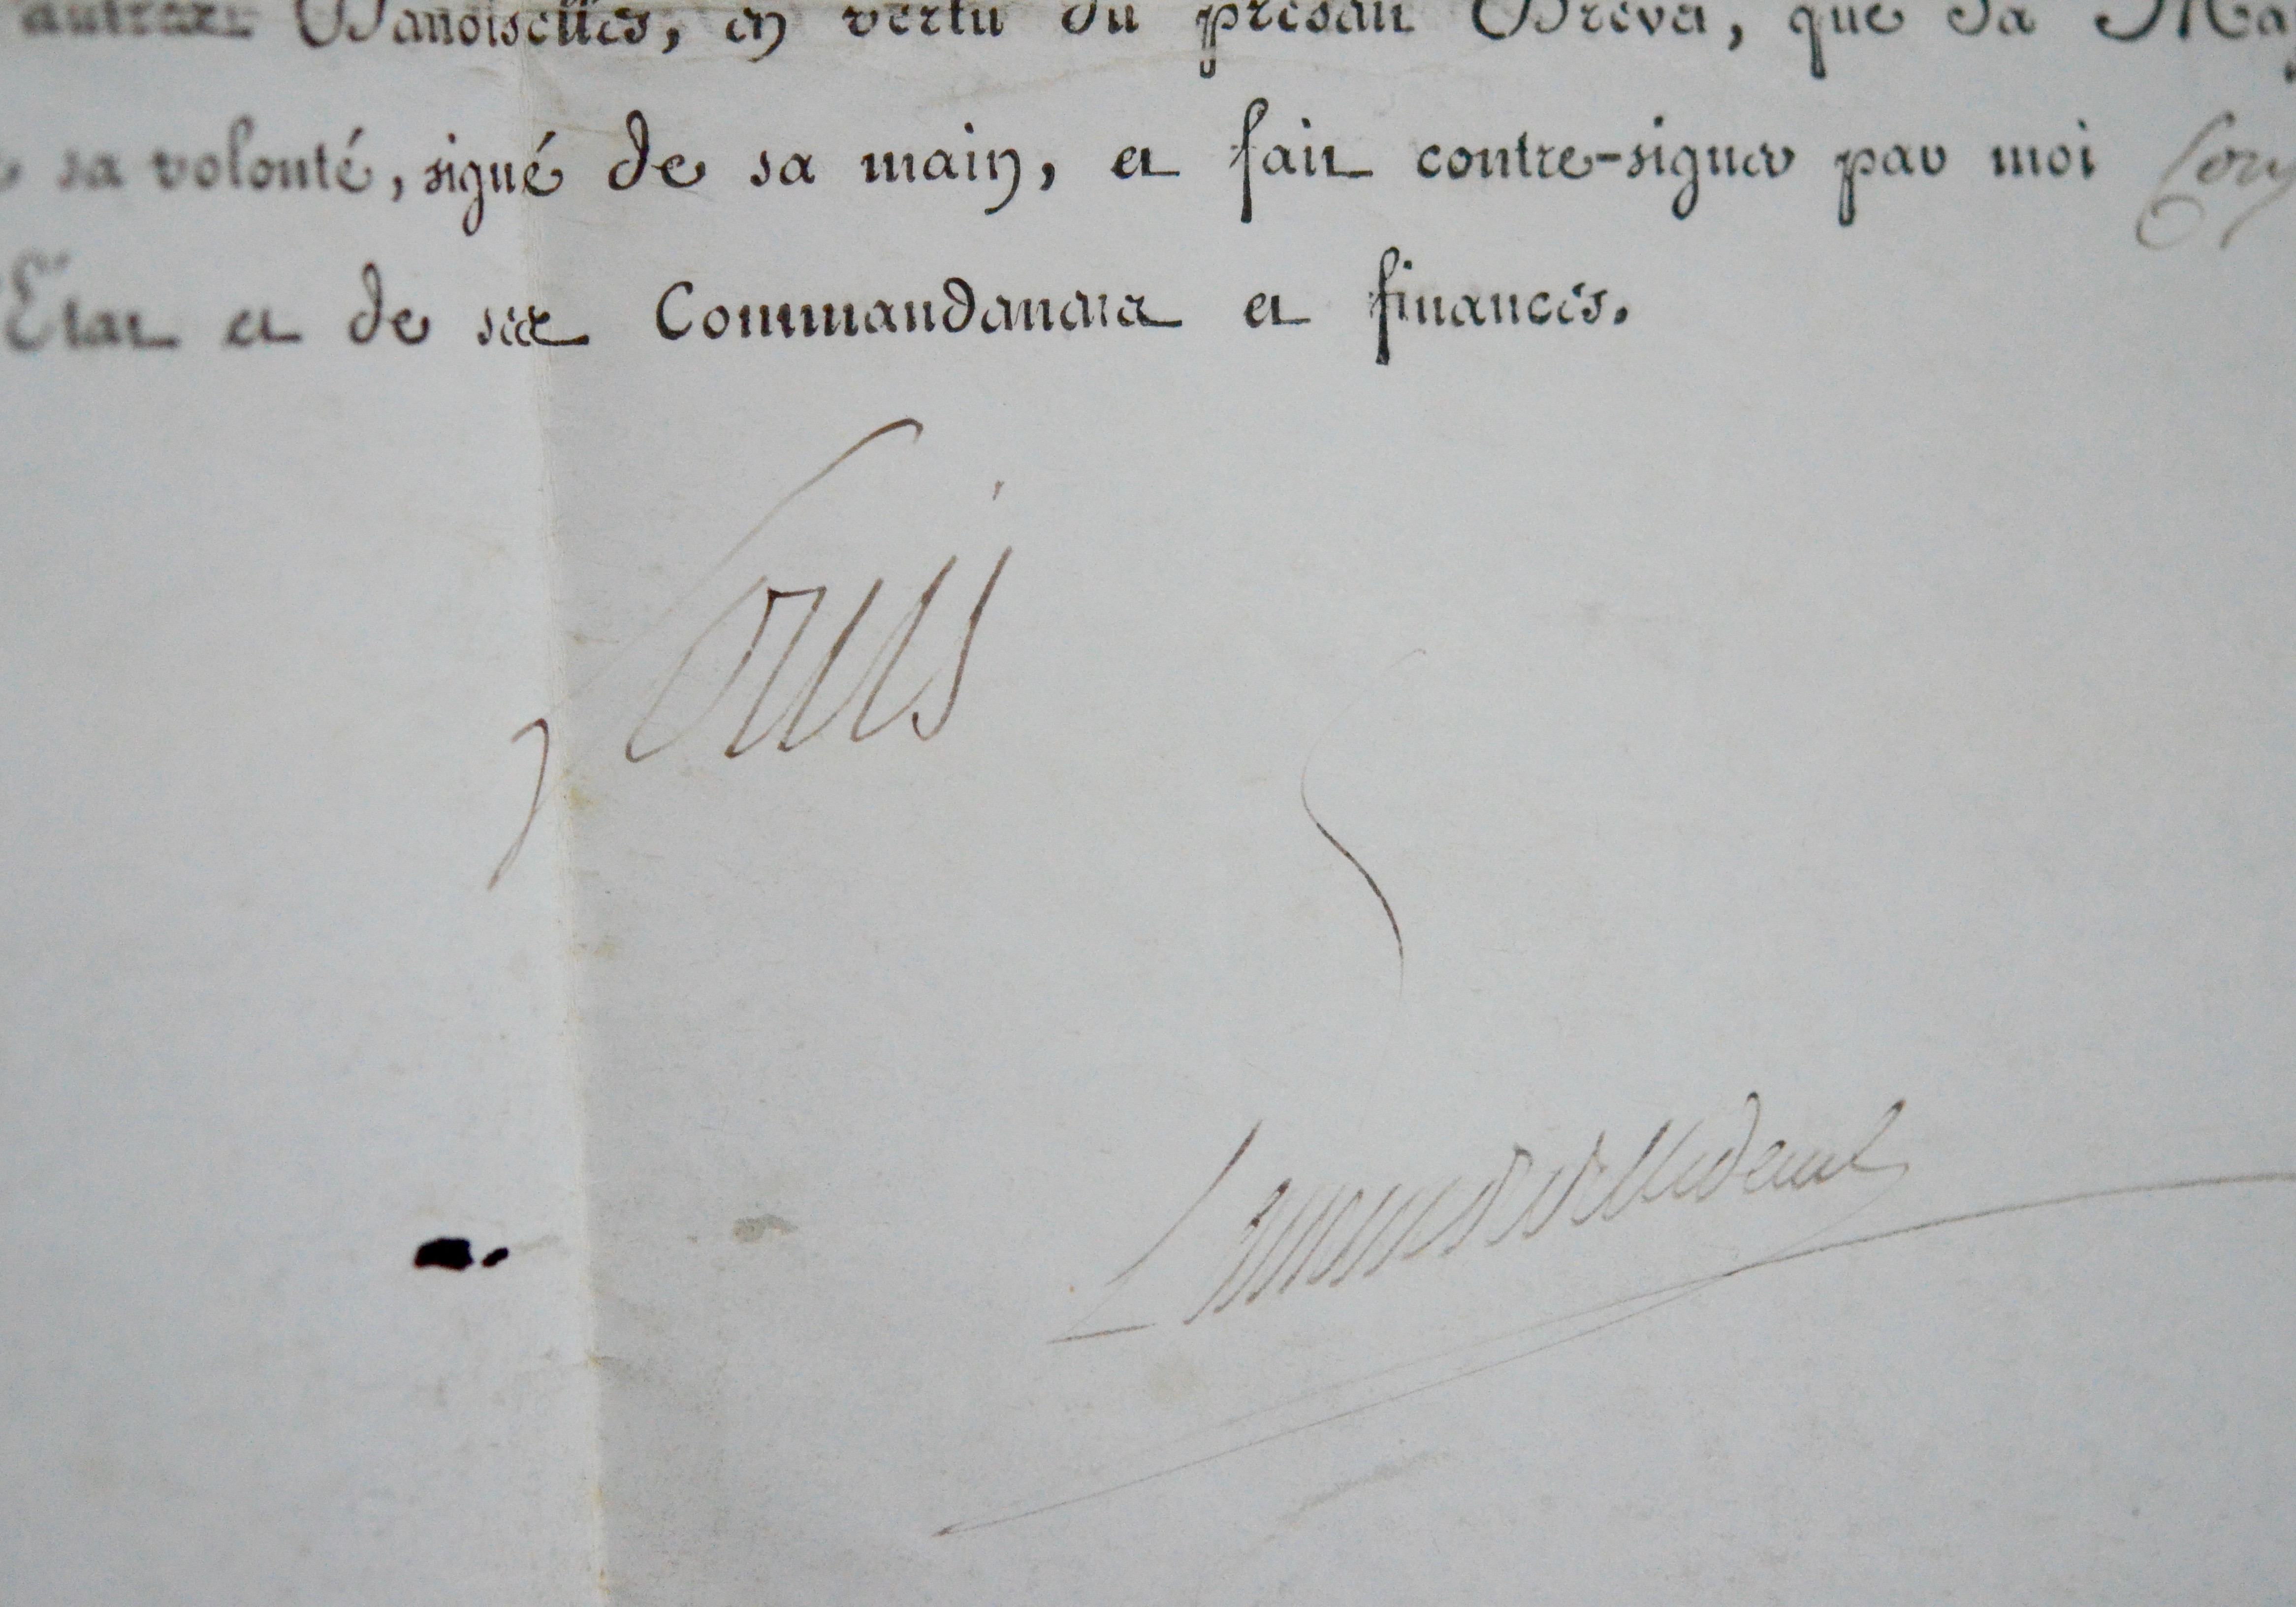 autres Damoiselles, en vertu du présent Brevet, que Sa Maj
sa volonté, signé de sa main, et fait contre-signer par moi Con
Etat et de ses Commandemens et finances.
Louis